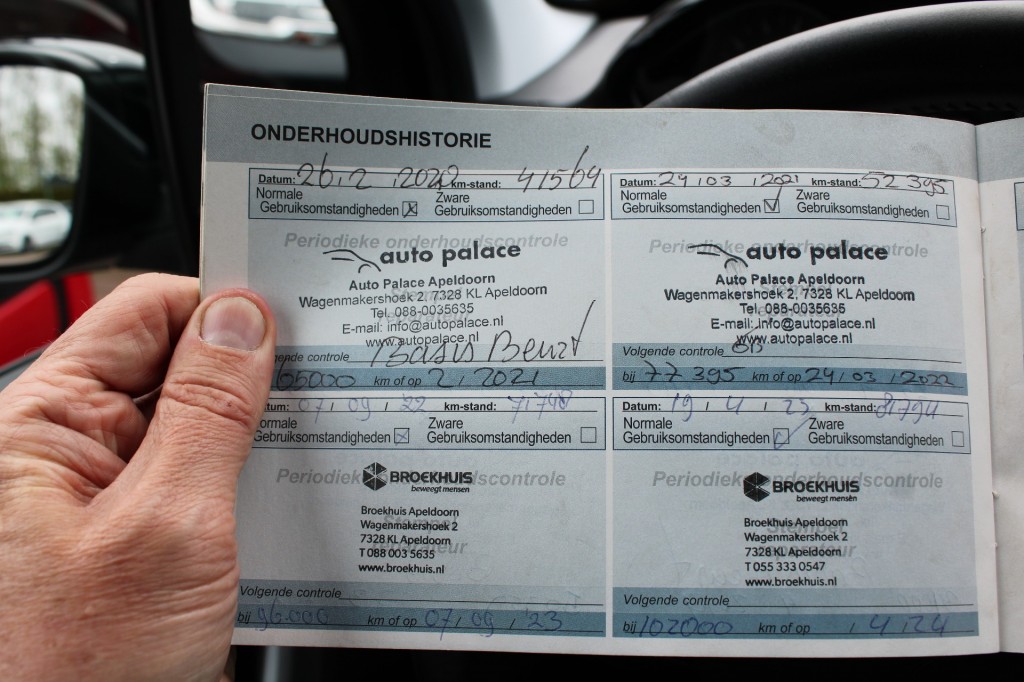 ONDERHOUDSHISTORIE
Datum: 26, 2, 2022 km-stand: 41569
Normale Gebruiksomstandigheden Zware Gebruiksomstandigheden
Periodieke onderhoudscontrole
auto palace
Auto Palace Apeldoorn
Wagenmakershoek 2, 7328 KL Apeldoorn
Tel. 088-0035635
E-mail: info@autopalace.nl
www.autopalace.nl
controle Basis Beurt
65000 km of op 2, 2021
Datum: 24, 03, 2021 km-stand: 52 395
Normale Gebruiksomstandigheden Zware Gebruiksomstandigheden
Periodieke onderhoudscontrole
auto palace
Auto Palace Apeldoorn
Wagenmakershoek 2, 7328 KL Apeldoorn
Tel. 088-0035635
E-mail: info@autopalace.nl
www.autopalace.nl
Volgende controle
bij 77 395 km of op 24, 03, 2022
07, 09, 22 km-stand: 71748
Gebruiksomstandigheden Zware Gebruiksomstandigheden
Periodieke onderhoudscontrole
BROEKHUIS
beweegt mensen
Broekhuis Apeldoorn
Wagenmakershoek 2
7328 KL Apeldoorn
T 088 003 5635
www.broekhuis.nl
Volgende controle
bij 96.000 km of op 07, 09, '23
Datum: 19, 4, 23 km-stand: 81794
Normale Gebruiksomstandigheden Zware Gebruiksomstandigheden
Periodieke onderhoudscontrole
BROEKHUIS
beweegt mensen
Broekhuis Apeldoorn
Wagenmakershoek 2
7328 KL Apeldoorn
T 055 333 0547
www.broekhuis.nl
Volgende controle
bij 102000 km of op , 4, 24